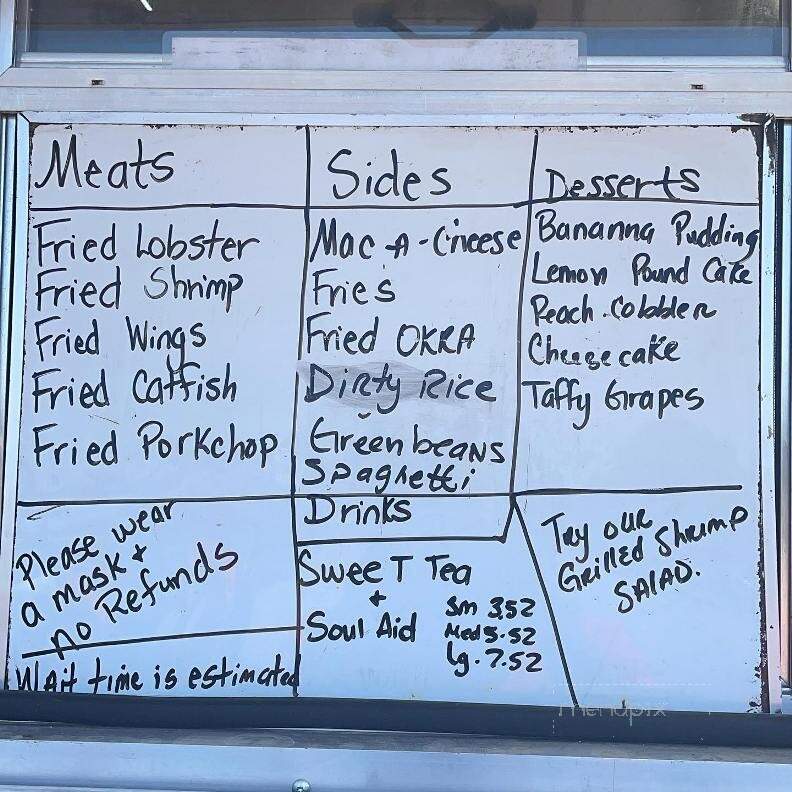 Meats
Fried Lobster
Fried Shrimp
Fried Wings
Fried Catfish
Fried Porkchop
Sides
Mac-A-Cheese
Fries
Fried OKRA
Dirty Rice
Green beans
Spaghetti
Desserts
Bananna Pudding
Lemon Pound Cake
Peach Cobbler
Cheesecake
Taffy Grapes
Please wear
a mask +
no Refunds
Wait time is estimated
Drinks
Sweet Tea
+
Soul Aid
Sm 3.52
Med 5.52
Lg. 7.52
Try our
Grilled Shrimp
SALAD.
menupix